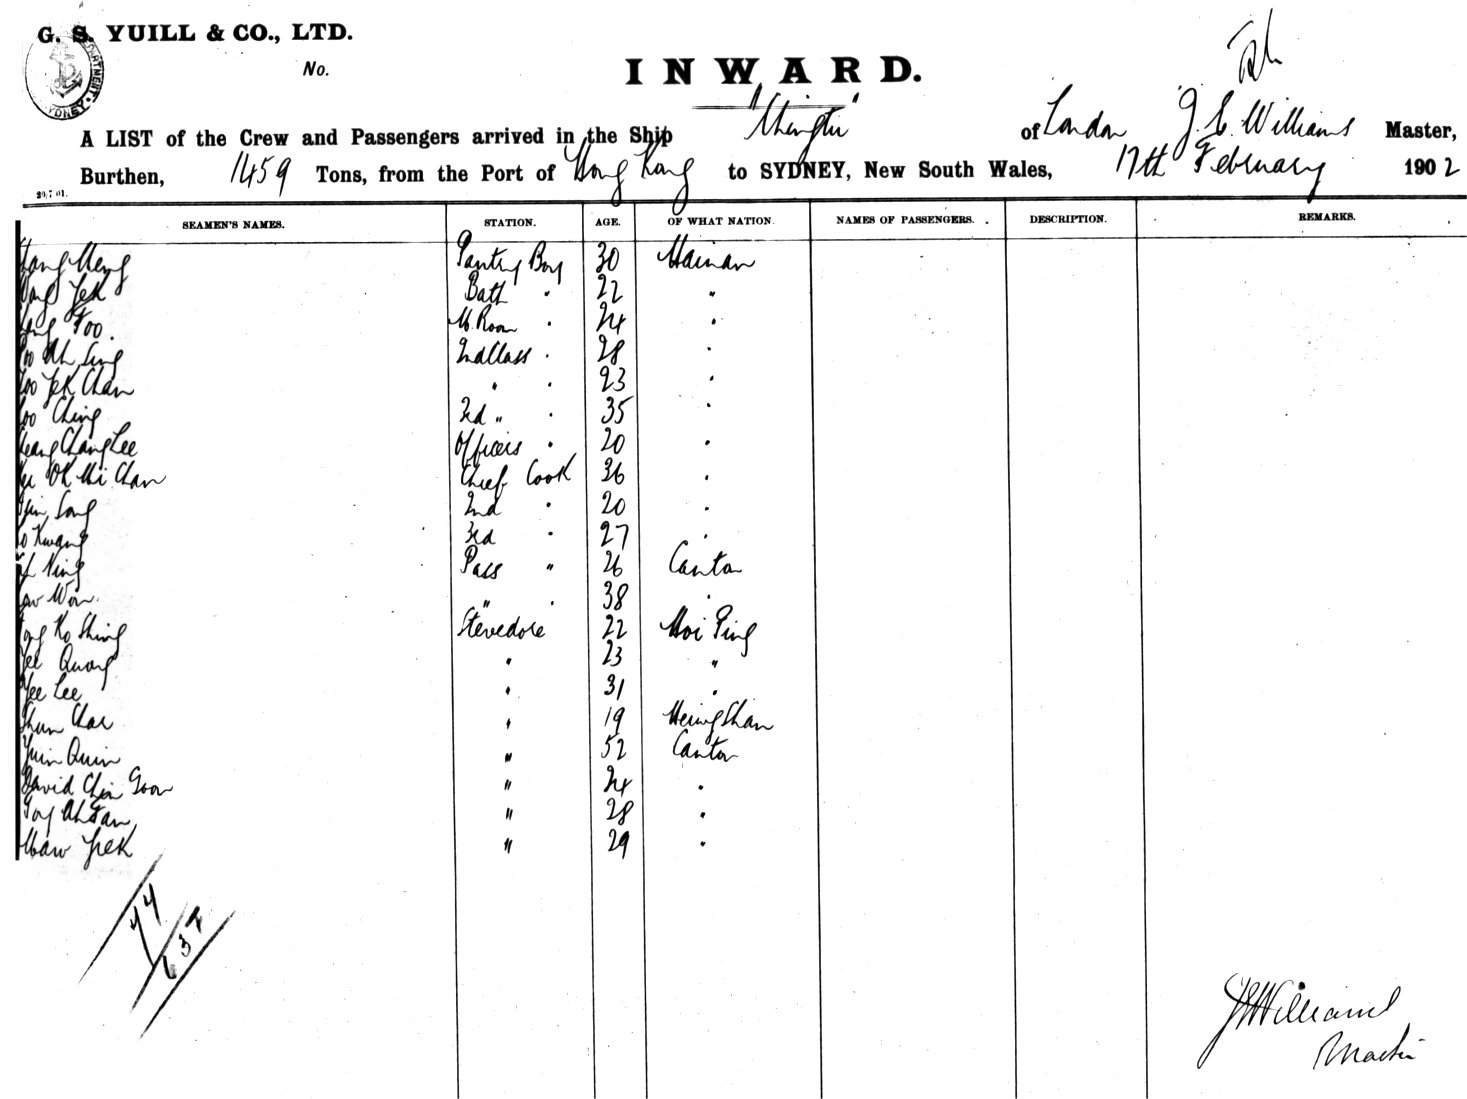 G. S. YUILL & CO., LTD.
No.
INWARD.
A LIST of the Crew and Passengers arrived in the Ship "Chingtu" of London J. E. Williams Master,
Burthen, 1459 Tons, from the Port of Hong Kong to SYDNEY, New South Wales, 17th February 1902
20.7.01.
SEAMEN'S NAMES. STATION. AGE. OF WHAT NATION. NAMES OF PASSENGERS. DESCRIPTION. REMARKS.
Pantry Boy 30 Hainan
Yek Bath " 22 "
Foo. M. Room " 24 "
Ah Sing 2nd Class " 28 "
Yek Chan " " 23 "
Ching 3rd " " 35 "
Chang Lee Officers " 20 "
Chan Chief Cook 36 "
Song 2nd " 20 "
Kwang 3rd " 27 "
Ning Pass " 26 Canton
Won " " 38 "
Ko Shing Stevedore 22 Hoi Ping
Yee Quang " 23 "
Yee Lee " 31 "
Shun Chac " 19 Heung Shan
Yuin Quin " 52 Canton
David Chin Goon " 24 "
Ah Fan " 28 "
Maw Yeek " 29 "
44
637
J E Williams
Master